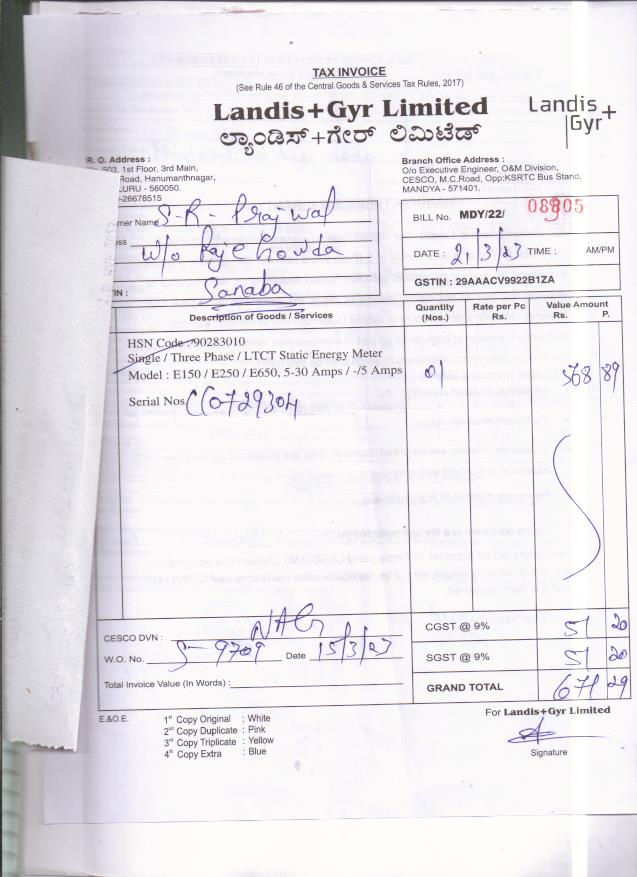 TAX INVOICE
(See Rule 46 of the Central Goods & Services Tax Rules, 2017)
Landis+Gyr Limited
ಲ್ಯಾಂಡಿಸ್+ಗೇರ್ ಲಿಮಿಟೆಡ್
Landis+
Gyr
R. O. Address :
503, 1st Floor, 3rd Main,
Road, Hanumanthnagar,
LURU - 560050.
-26678515
Branch Office Address :
O/o Executive Engineer, O&M Division,
CESCO, M.C.Road, Opp:KSRTC Bus Stand,
MANDYA - 571401.
mer Name S-R- Prajwal
ess W/o Raje Gowda
IN : Sanaba
BILL No. MDY/22/ 08905
DATE : 21/3/23 TIME : AM/PM
GSTIN : 29AAACV9922B1ZA
Description of Goods / Services Quantity (Nos.) Rate per Pc Rs. Value Amount Rs. P.
HSN Code : 90283010
Single / Three Phase / LTCT Static Energy Meter
Model : E150 / E250 / E650, 5-30 Amps / -/5 Amps 01 568 89
Serial Nos CC0729304
CESCO DVN : NAG
W.O. No. S-9709 Date 15/3/23
Total Invoice Value (In Words) :
CGST @ 9% 51 20
SGST @ 9% 51 20
GRAND TOTAL 671 29
E.&O.E.
1st Copy Original : White
2nd Copy Duplicate : Pink
3rd Copy Triplicate : Yellow
4th Copy Extra : Blue
For Landis+Gyr Limited
Signature